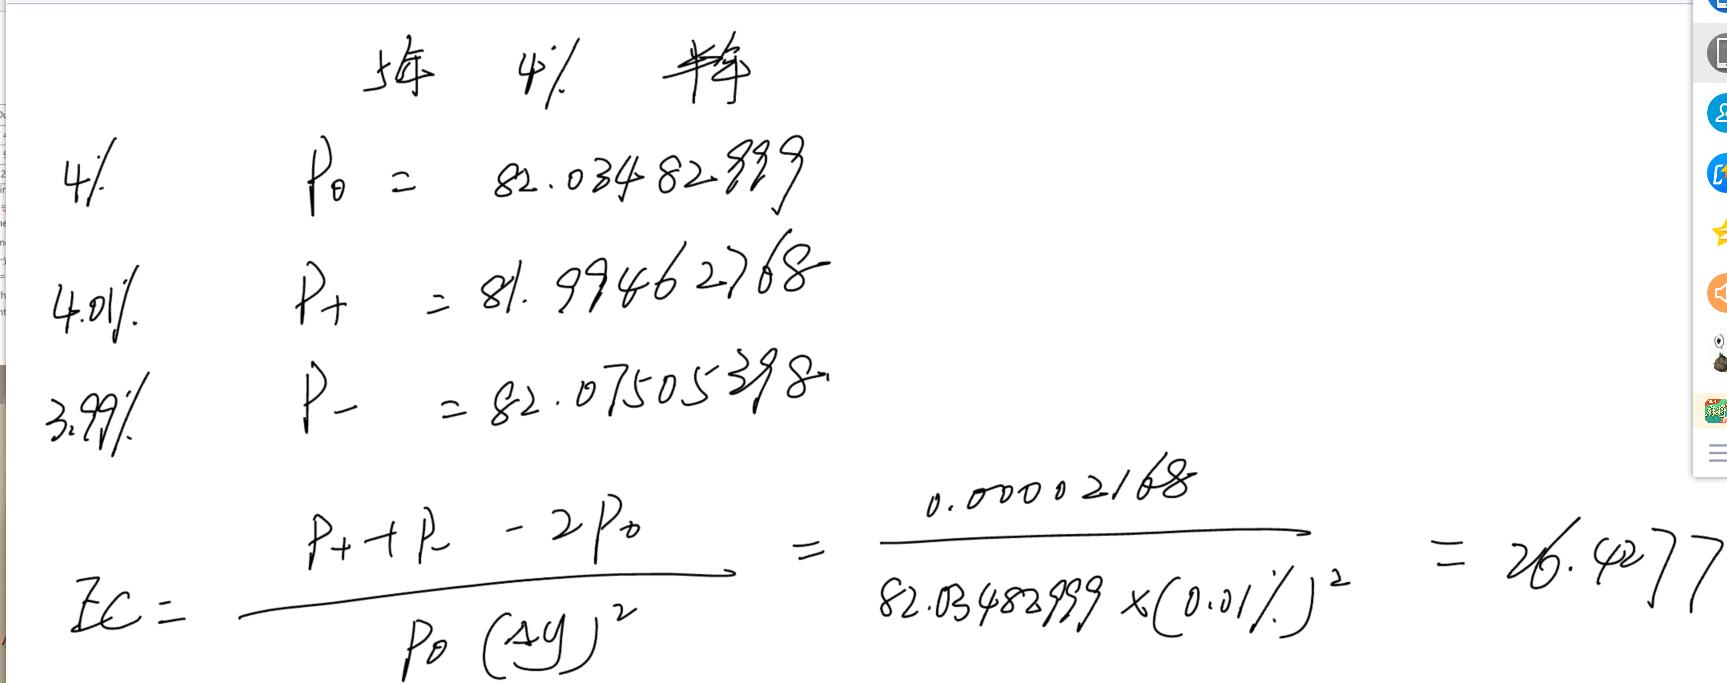 5年 4% 半年
4% P0 = 82.03482999
4.01% P+ = 81.99462768
3.99% P- = 82.07505398
EC = P+ + P- - 2P0 / P0 (Δy)² = 0.00002168 / 82.03482999 × (0.01%)² = 26.4277